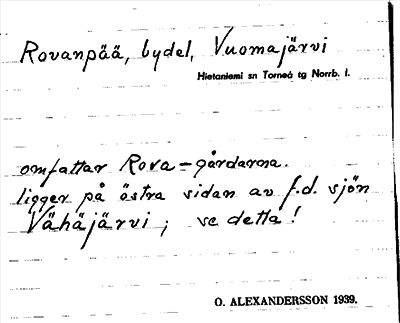 Rovanpää, bydel, Vuomajärvi
Hietaniemi sn Torneå tg Norrb. l.
omfattar Rova-gårdarna.
ligger på östra sidan av f.d. sjön
Vähäjärvi; se detta!
O. ALEXANDERSSON 1939.